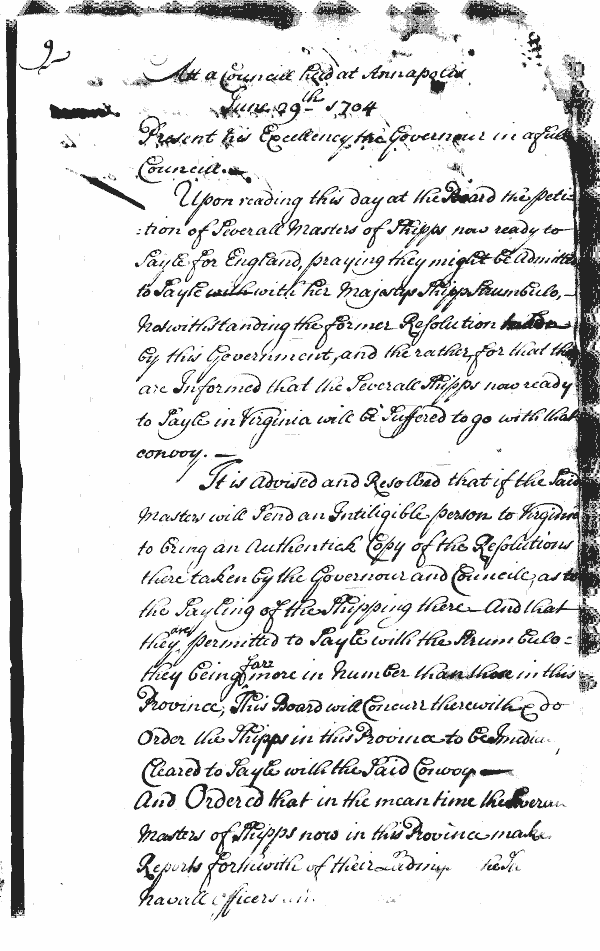 9
Att a Councill held at Annapolis
June 29th 1704
Present his Excellency the Governour in a full
Councill.
Upon reading this day at the Board the peti-
:tion of Severall Masters of Shipps now ready to
Sayle for England, praying they might be Admitted
to Sayle with her Majestys Shipp Strumbulo,
Notwithstanding the former Resolution
by this Government, and the rather, for that they
are Informed that the Severall Shipps now ready
to Sayle in Virginia will be Suffered to go with that
convoy.
It is advised and Resolved that if the Said
Masters will Send an Intiligible person to Virginia
to bring an Authentick Copy of the Resolutions
there taken by the Governour and Councill, as to
the Sayling of the Shipping there And that
they are permitted to Sayle with the Strumbulo:
they being farr more in Number than those in this
Province, This Board will Concurr therewith & do
Order the Shipps in this Province to be
Cleared to Sayle with the Said Convoy
And Ordered that in the mean time the
Masters of Shipps now in this Province make
Reports forthwith of their
Navall officers